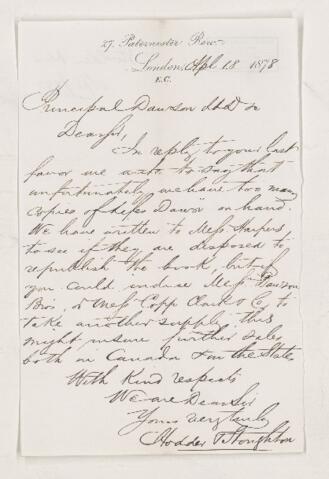 27, Paternoster Row,
London, Apl 18 1878
E.C.
Principal Dawson LLD &c
Dear Sir,
In reply to your last
favor we write to say that
unfortunately we have too many
copies of Lifes Dawn on hand.
We have written to Messrs Harpers
to see if they are disposed to
republish the book, but if
you could induce Messrs Dawson
Bros, or Messrs Copp Clark & Co, to
take another supply this
might insure further sales
both in Canada & in the States
With Kind respects
We are Dear Sir
Yours very truly
Hodder & Stoughton